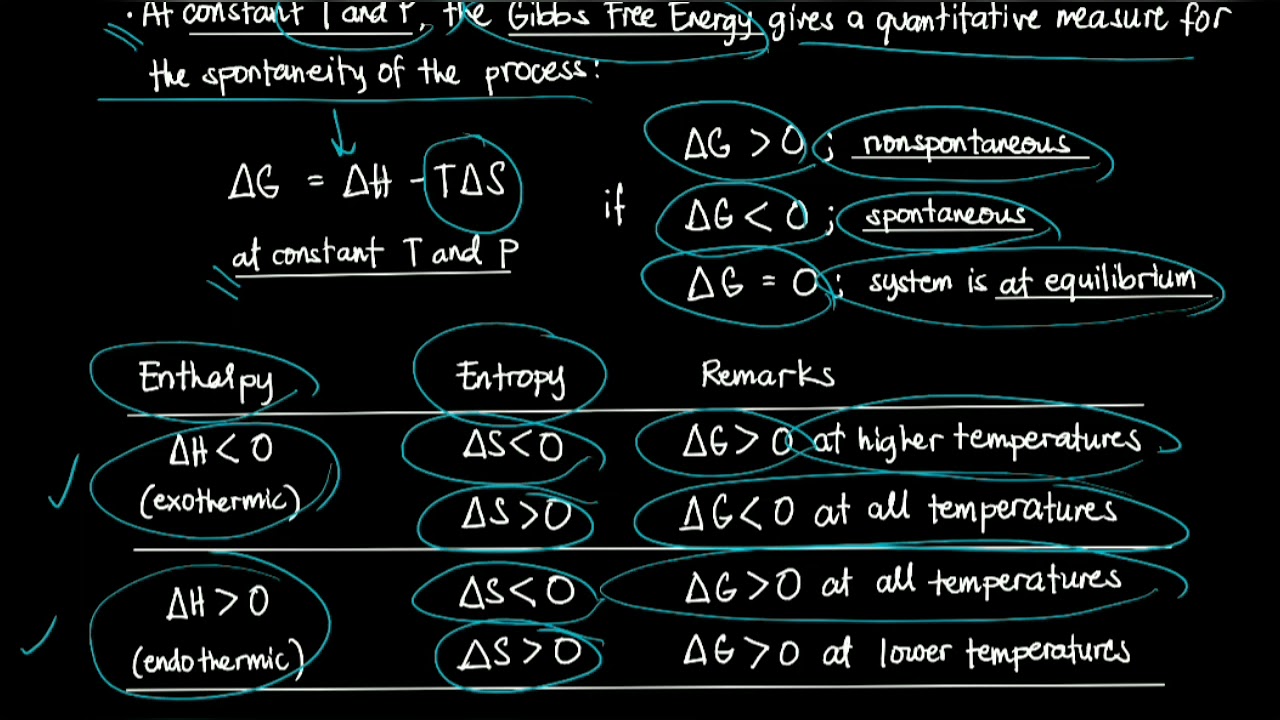 · At constant T and P, the Gibbs Free Energy gives a quantitative measure for
the spontaneity of the process:
ΔG = ΔH - TΔS
at constant T and P
if
ΔG > 0 ; nonspontaneous
ΔG < 0 ; spontaneous
ΔG = 0 ; system is at equilibrium
Enthalpy Entropy Remarks
ΔH < 0 (exothermic)
ΔS < 0 ΔG > 0 at higher temperatures
ΔS > 0 ΔG < 0 at all temperatures
ΔH > 0 (endothermic)
ΔS < 0 ΔG > 0 at all temperatures
ΔS > 0 ΔG > 0 at lower temperatures